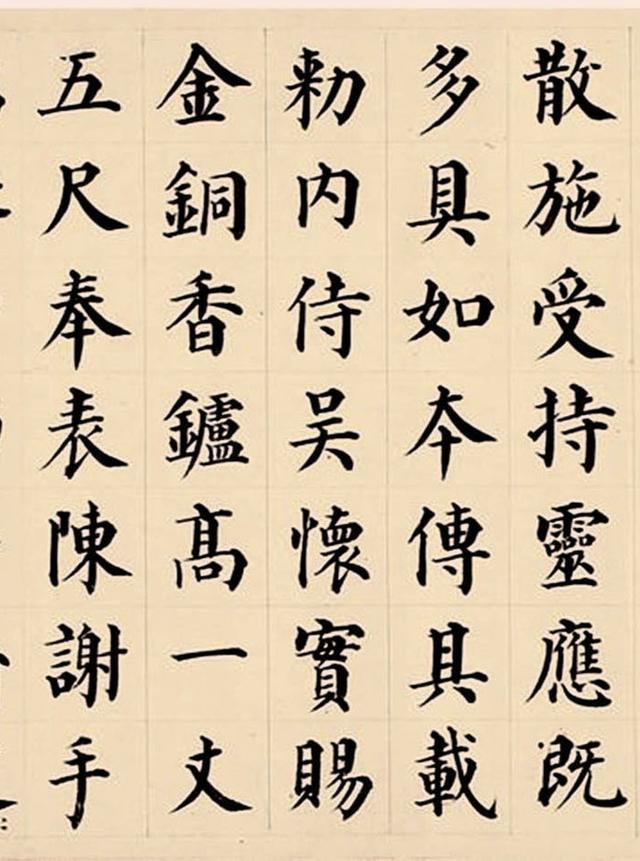 散施受持靈應既
多具如本傳具載
勑内侍吴懷實賜
金銅香鑪髙一丈
五尺奉表陳謝手